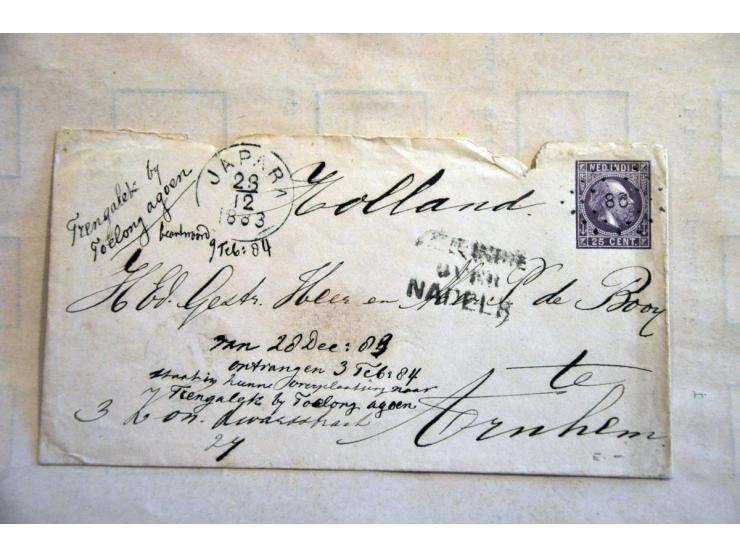 Trengalek by
Toelong agoen
JAPARA
28
12
1883
Holland.
NED. INDIE
86
25 CENT.
beantwoord
9 Feb: 84
N. INDIE
OVER
NAPELS
HEd. Gestr. Heer en de Booy
van 28 Dec: 83
ontvangen 3 Feb: 84
hunne overplaatsing naar
Trengalek by Toelong agoen
te
Arnhem.
3
27